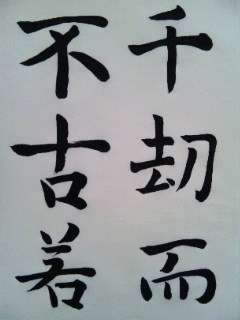 千劫而
不古若